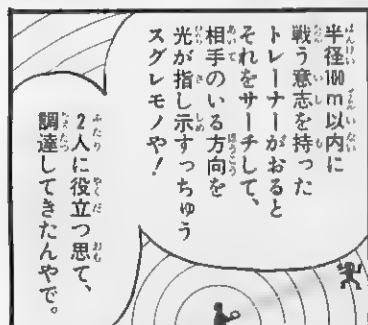 半径100m以内に
戦う意志を持った
トレーナーがおると
それをサーチして、
相手のいる方向を
光が指し示すっちゅう
スグレモノや!
2人に役立つ思て、
調達してきたんやで。